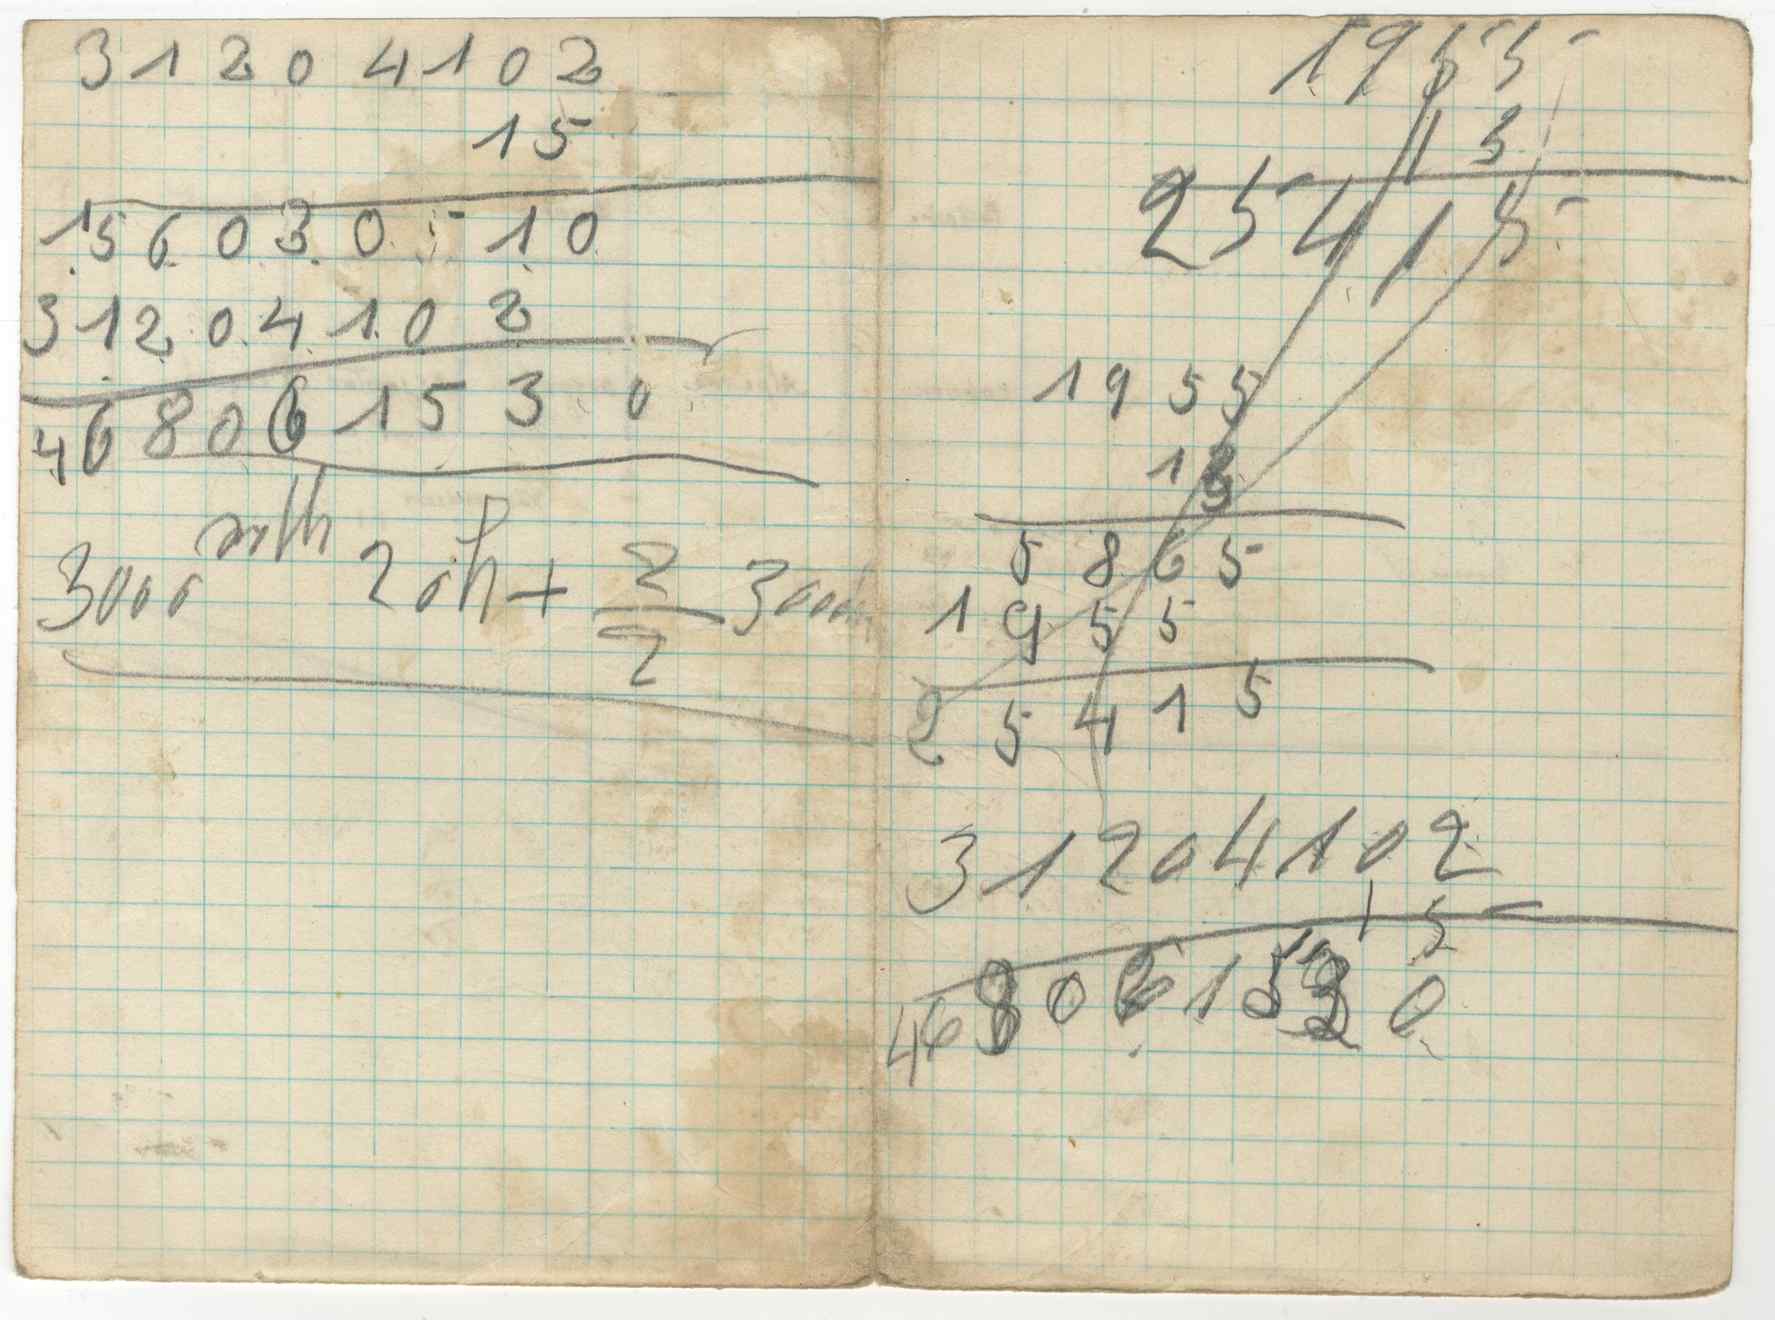 31204102
15
156030510
31204102
468061530
3000 2 + 2/2 3000
1955
13
25415
1955
13
5865
1955
25415
31204102
15
468061530